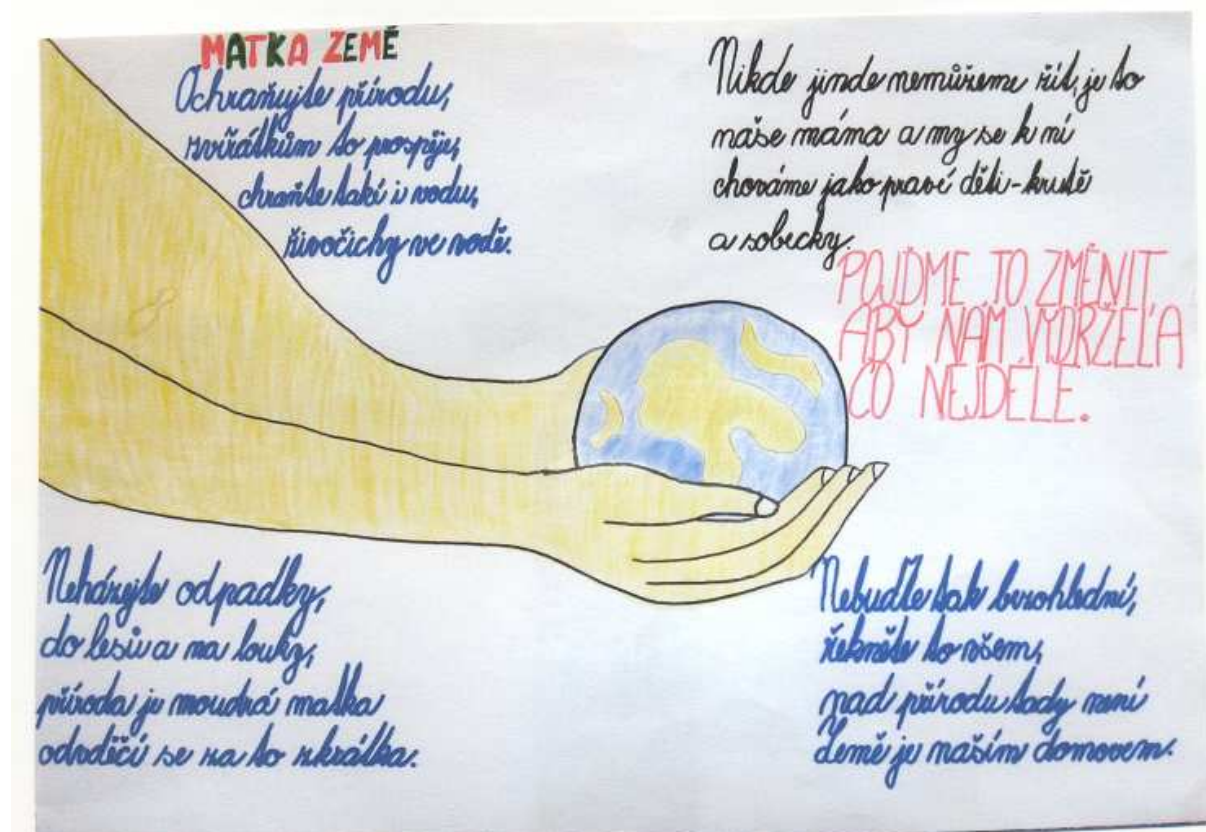 MATKA ZEMĚ
Ochraňujte přírodu,
zvířátkům to prospěje,
chraňte také i vodu,
živočichy ve vodě.
Nikde jinde nemůžeme žít, je to
naše máma a my se k ní
chováme jako pravé děti-krutě
a sobecky.
POJĎME TO ZMĚNIT,
ABY NÁM VYDRŽELA
CO NEJDÉLE.
Neházejte odpadky,
do lesů a na louky,
příroda je moudrá matka
odvděčí se za to zkrátka.
Nebuďte tak bezohlední,
řekněte to všem,
nad přírodu tady není
Země je naším domovem.